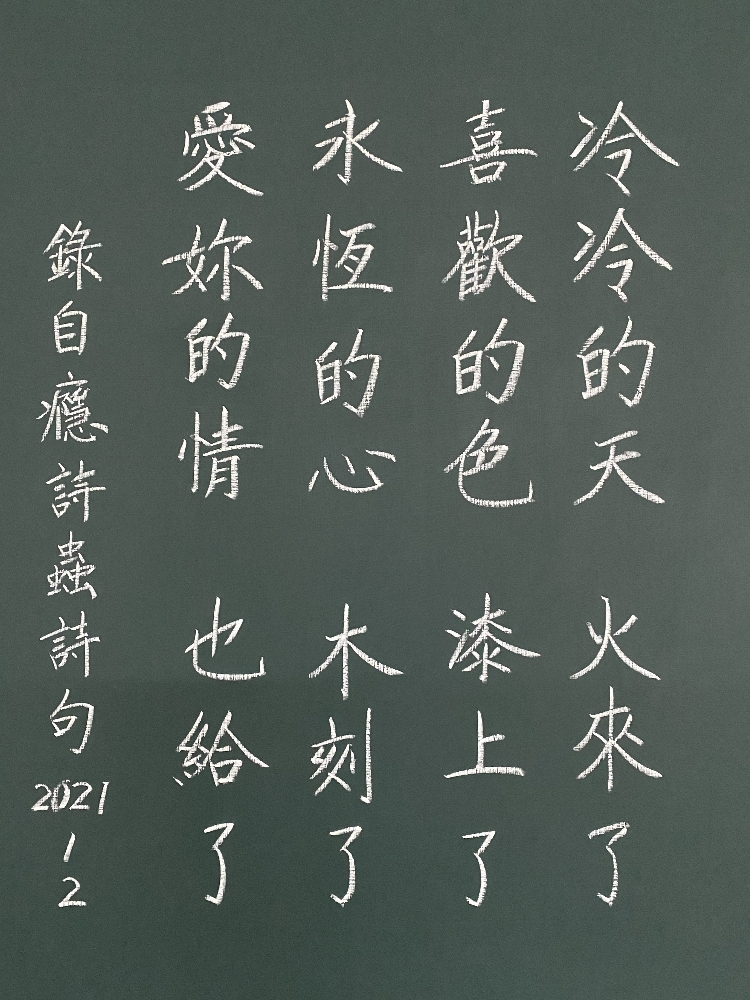 冷冷的天　火來了
喜歡的色　漆上了
永恆的心　木刻了
愛妳的情　也給了
錄自癮詩蟲詩句 2021 1 2